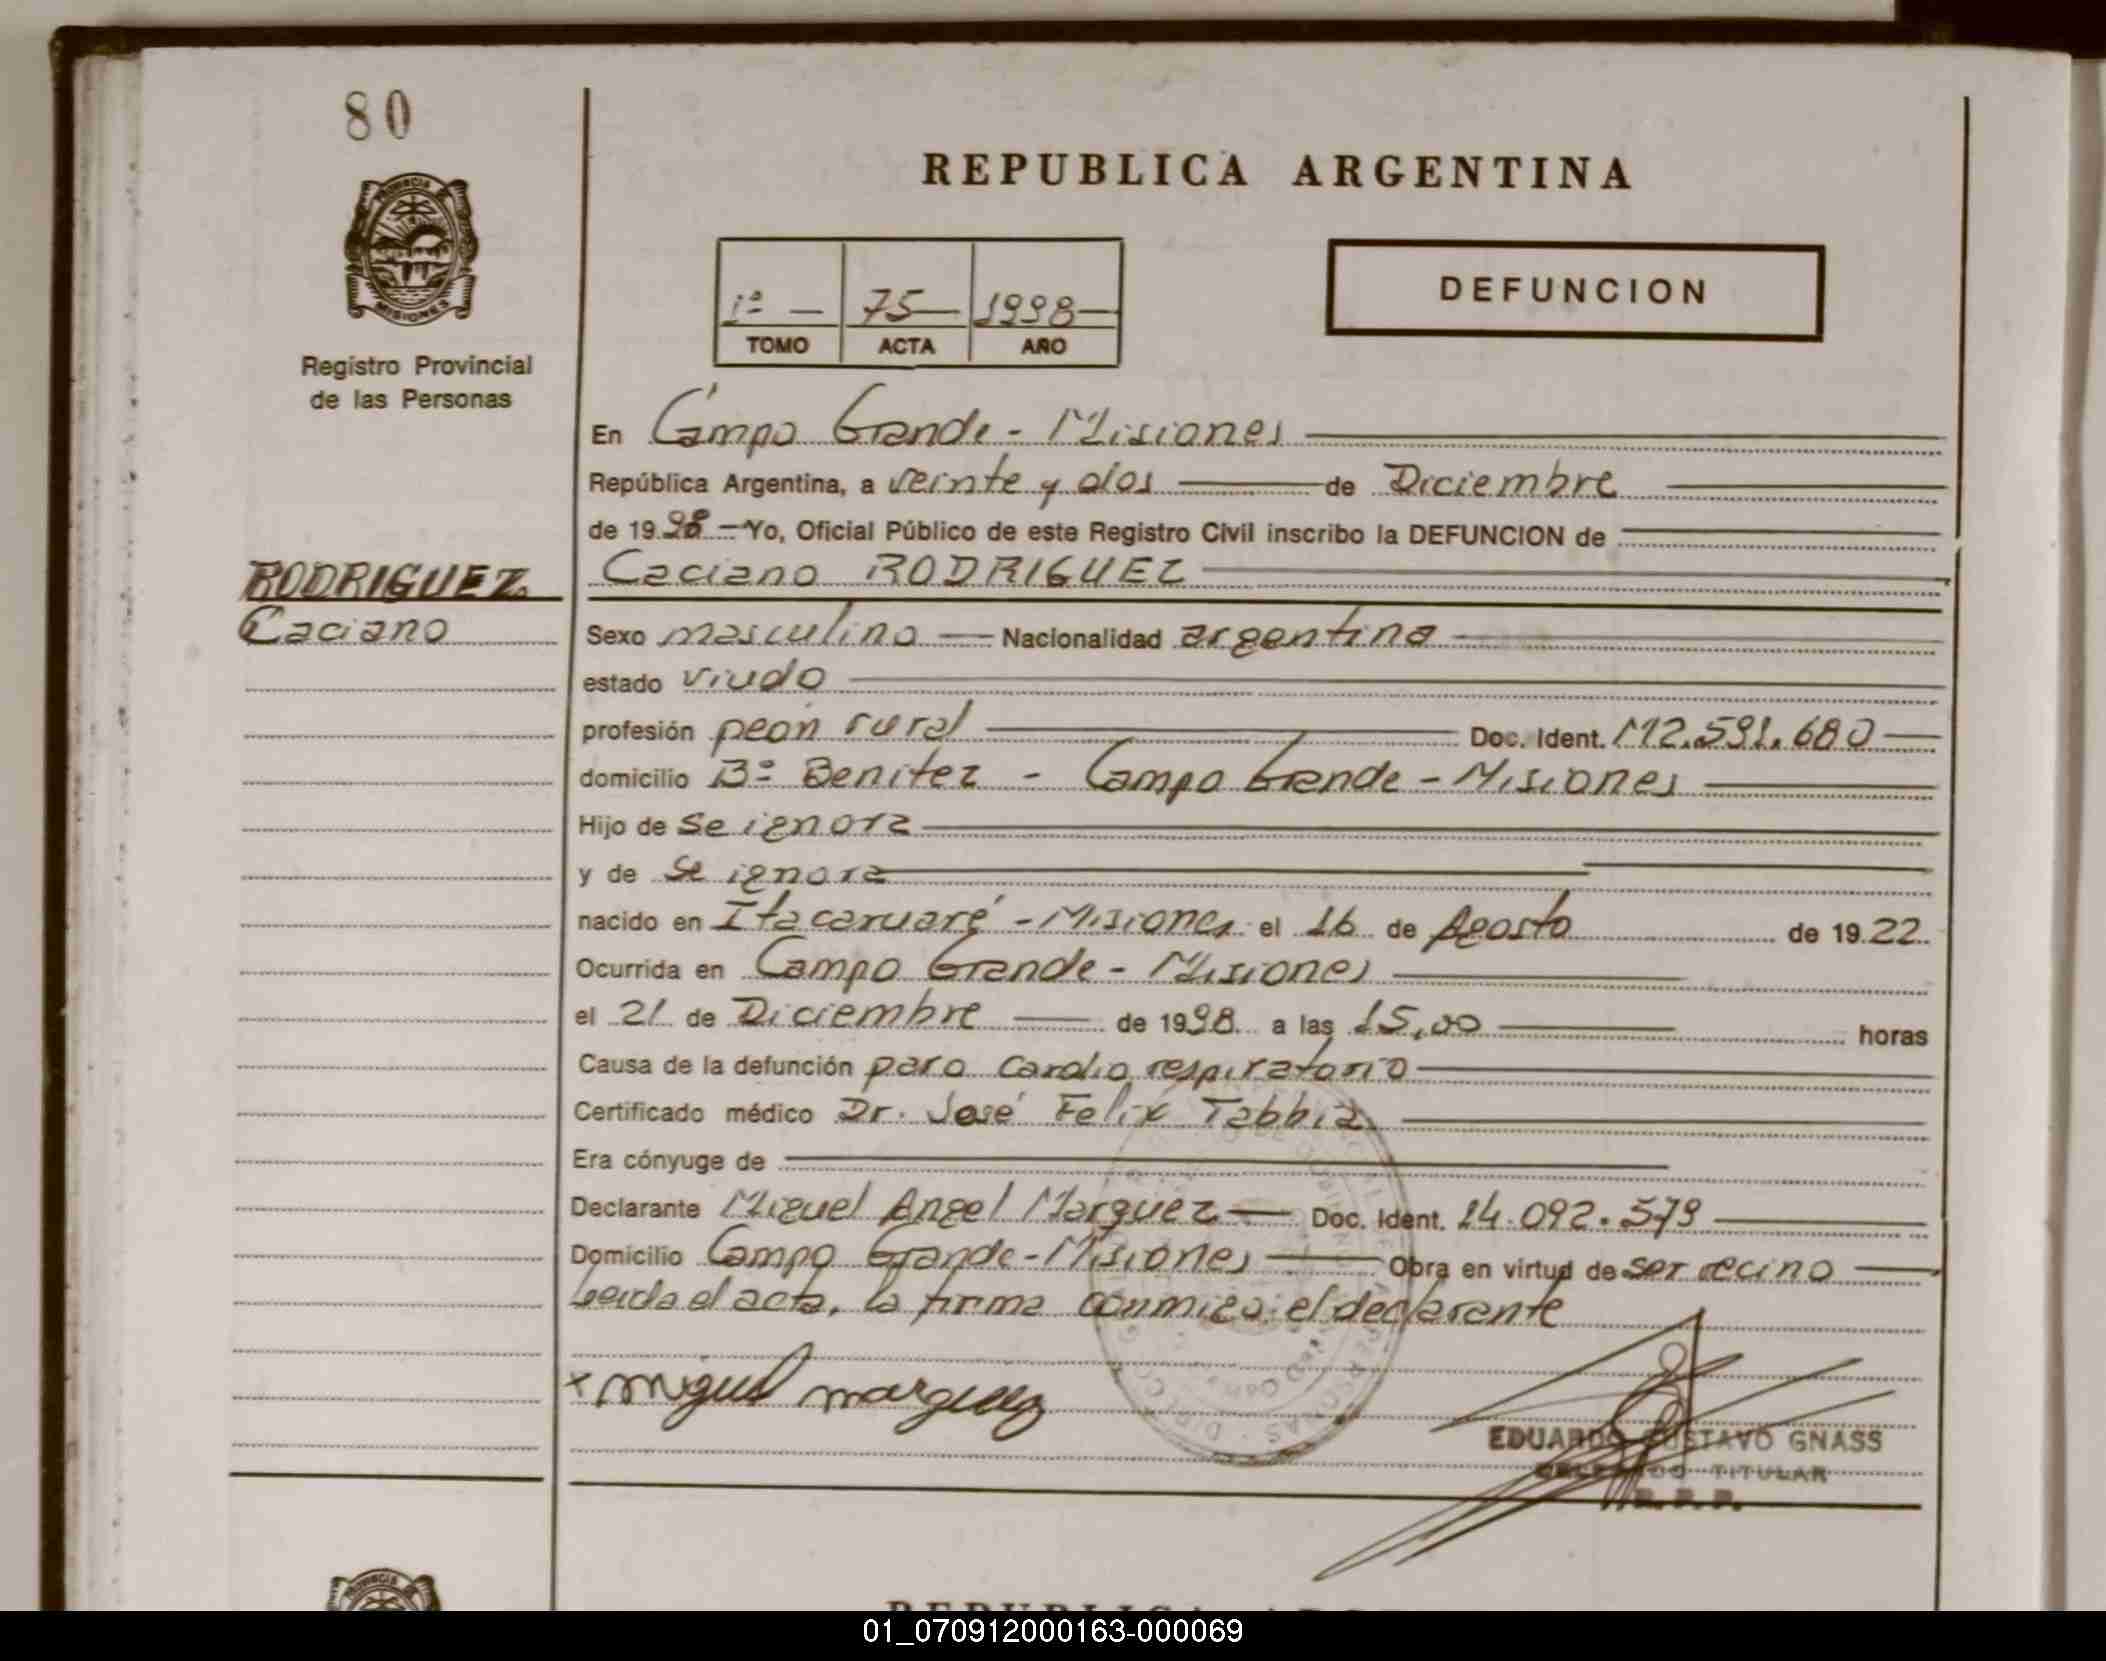 80
REPUBLICA ARGENTINA
PROVINCIA DE
MISIONES
1º — 75— 1998—
TOMO ACTA AÑO
DEFUNCION
Registro Provincial
de las Personas
En Campo Grande - Misiones
República Argentina, a veinte y dos de Diciembre
de 1998 — Yo, Oficial Público de este Registro Civil inscribo la DEFUNCION de
RODRIGUEZ.
Caciano RODRIGUEZ
Caciano
Sexo masculino — Nacionalidad argentina
estado viudo
profesión peón rural Doc. Ident. M2.591.680
domicilio Bº Benitez - Campo Grande - Misiones
Hijo de se ignora
y de se ignora
nacido en Itacaruaré - Misiones el 16 de Agosto de 1922.
Ocurrida en Campo Grande - Misiones
el 21 de Diciembre de 1998 a las 15,00 horas
Causa de la defunción paro cardio respiratorio
Certificado médico Dr. José Felix Tabbia
Era cónyuge de
Declarante Miguel Angel Marquez — Doc. Ident. 14.092.579
Domicilio Campo Grande - Misiones Obra en virtud de ser vecino
Leida el acta, la firma conmigo el declarante
x miguel marquez
EDUARDO GUSTAVO GNASS
DELEGADO TITULAR
R. P. P.
01_070912000163-000069